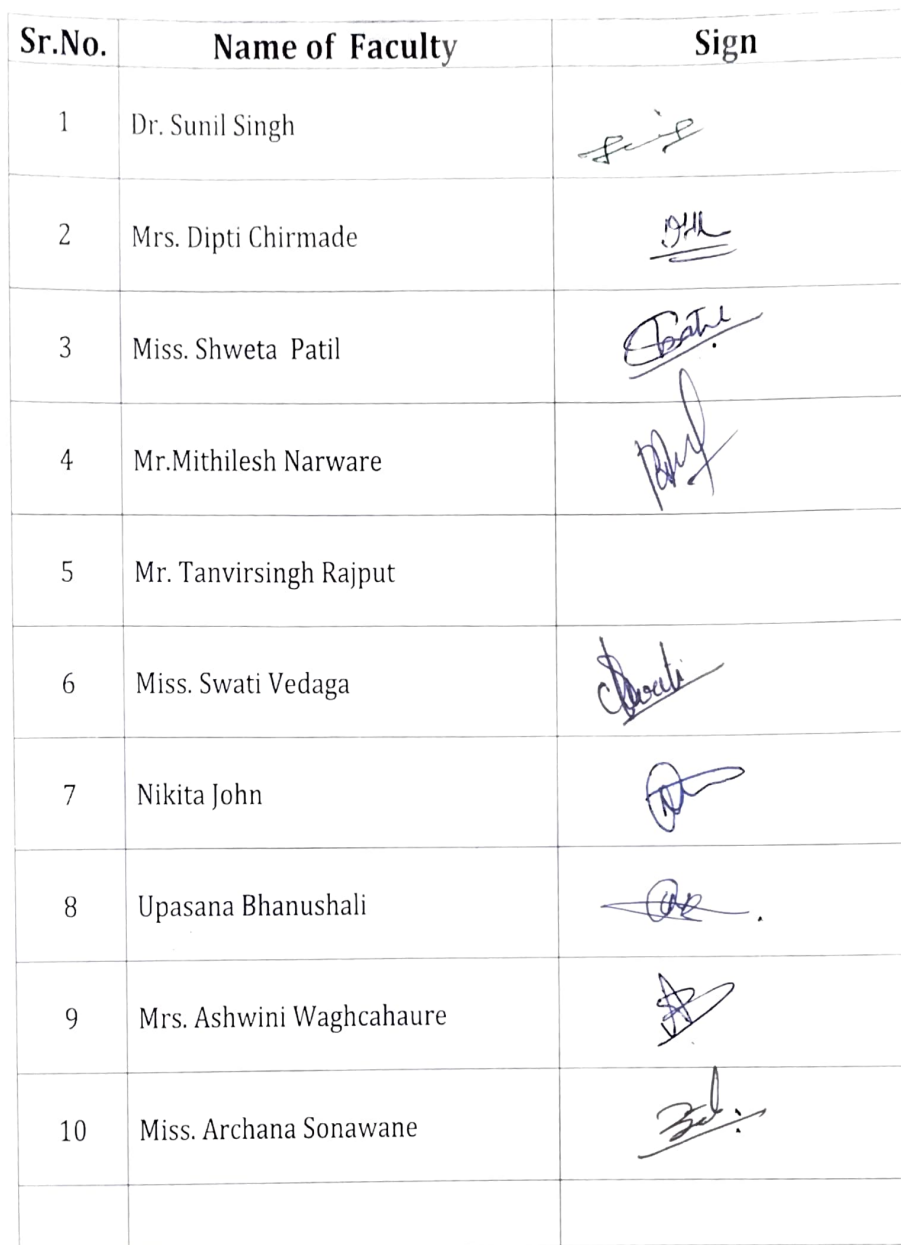 Sr.No. Name of Faculty Sign
1 Dr. Sunil Singh
2 Mrs. Dipti Chirmade
3 Miss. Shweta Patil
4 Mr.Mithilesh Narware
5 Mr. Tanvirsingh Rajput
6 Miss. Swati Vedaga Swati
7 Nikita John
8 Upasana Bhanushali
9 Mrs. Ashwini Waghcahaure
10 Miss. Archana Sonawane